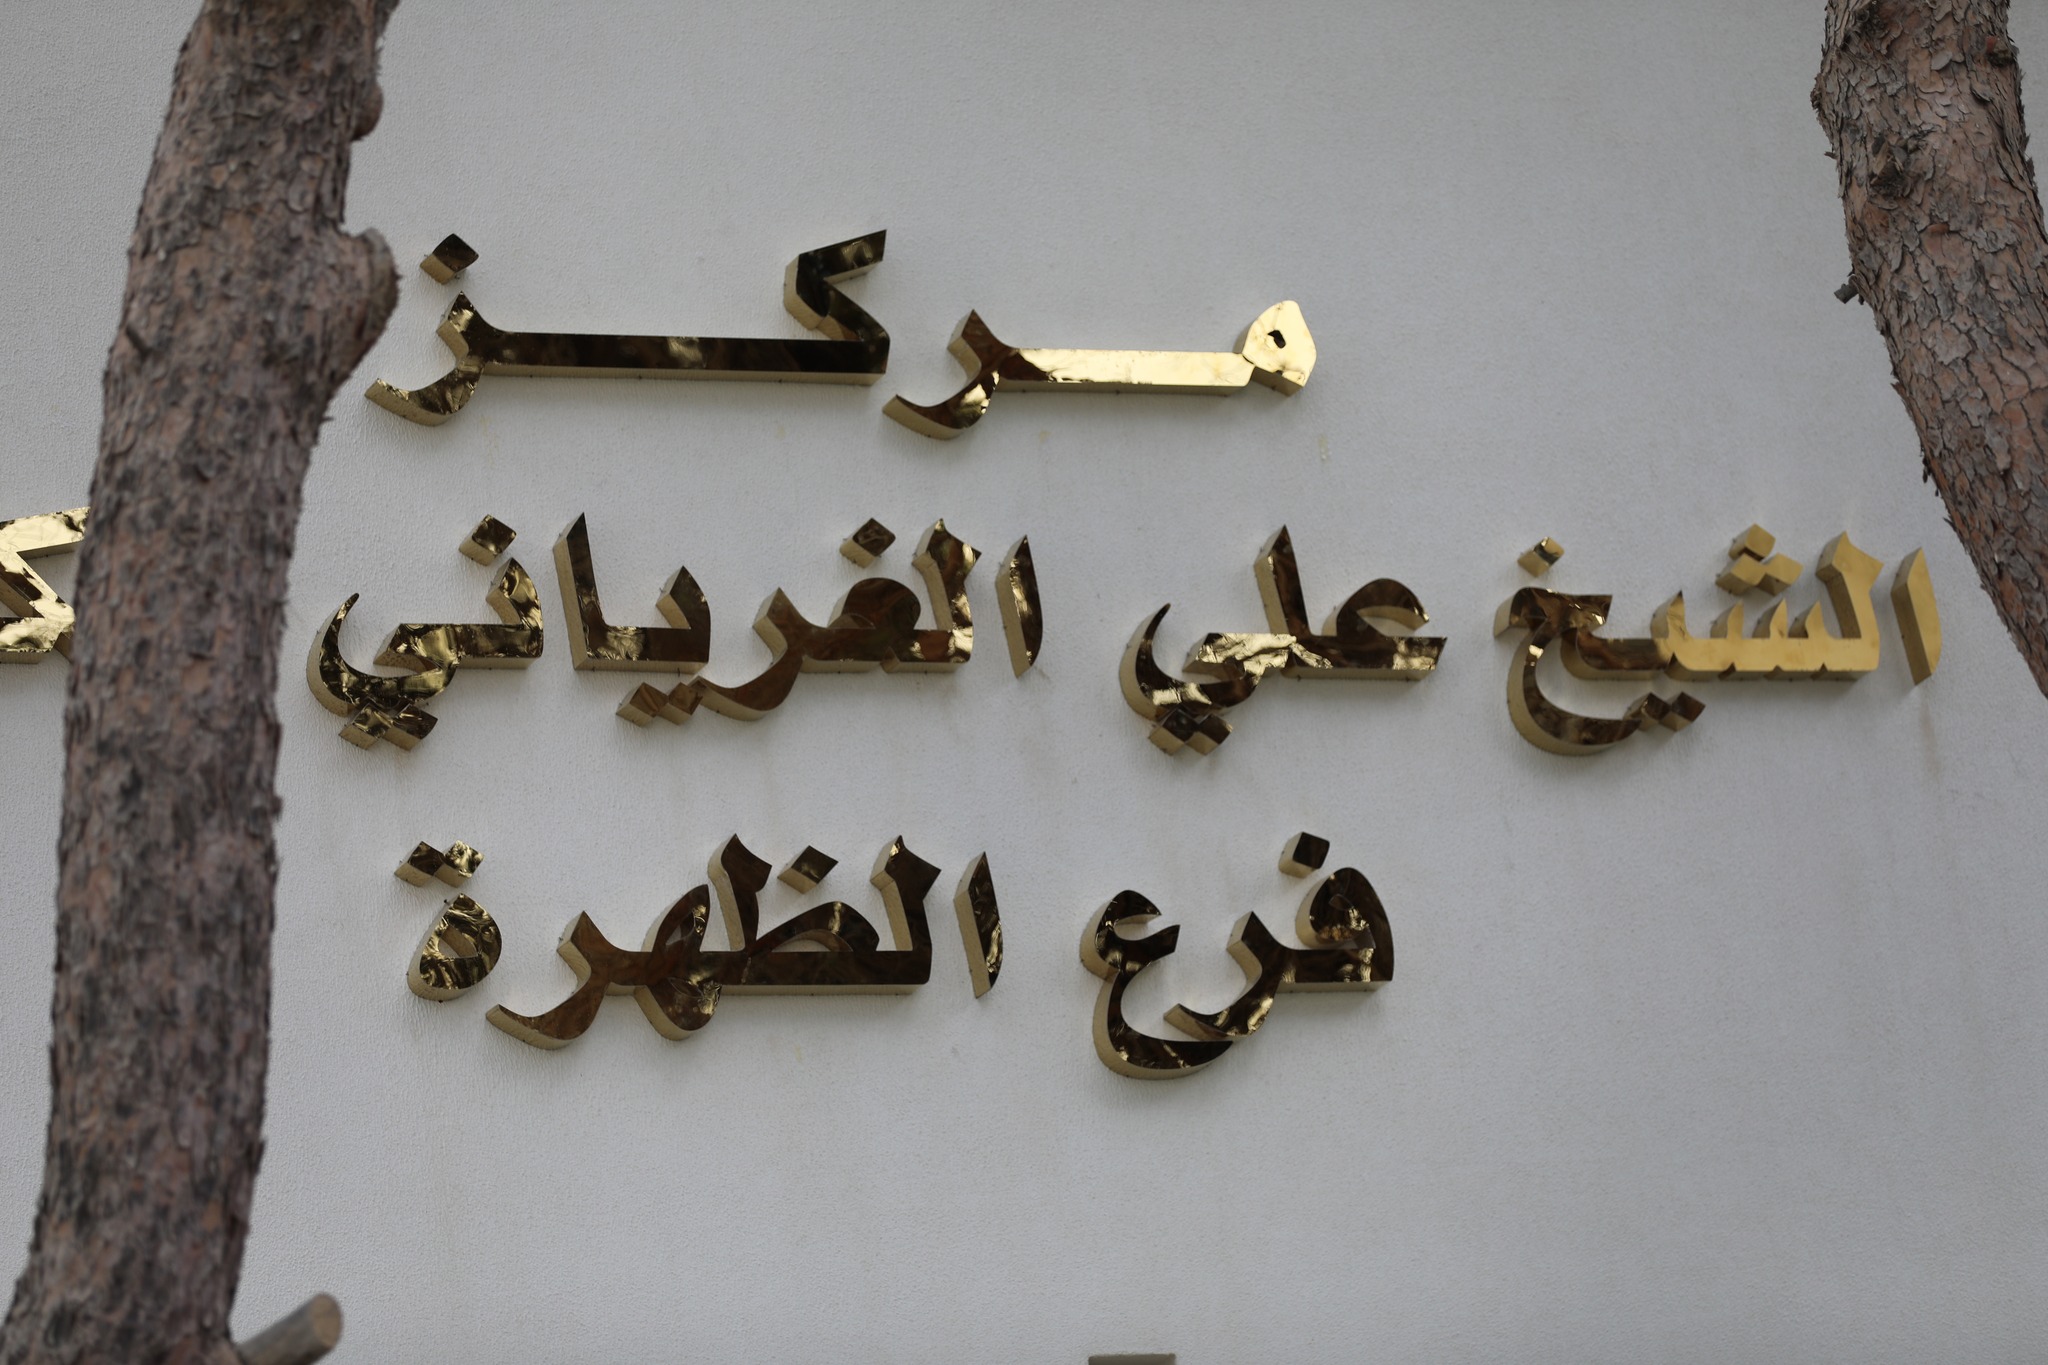 مركز
الشيخ علي الغرياني
فرع الظهرة